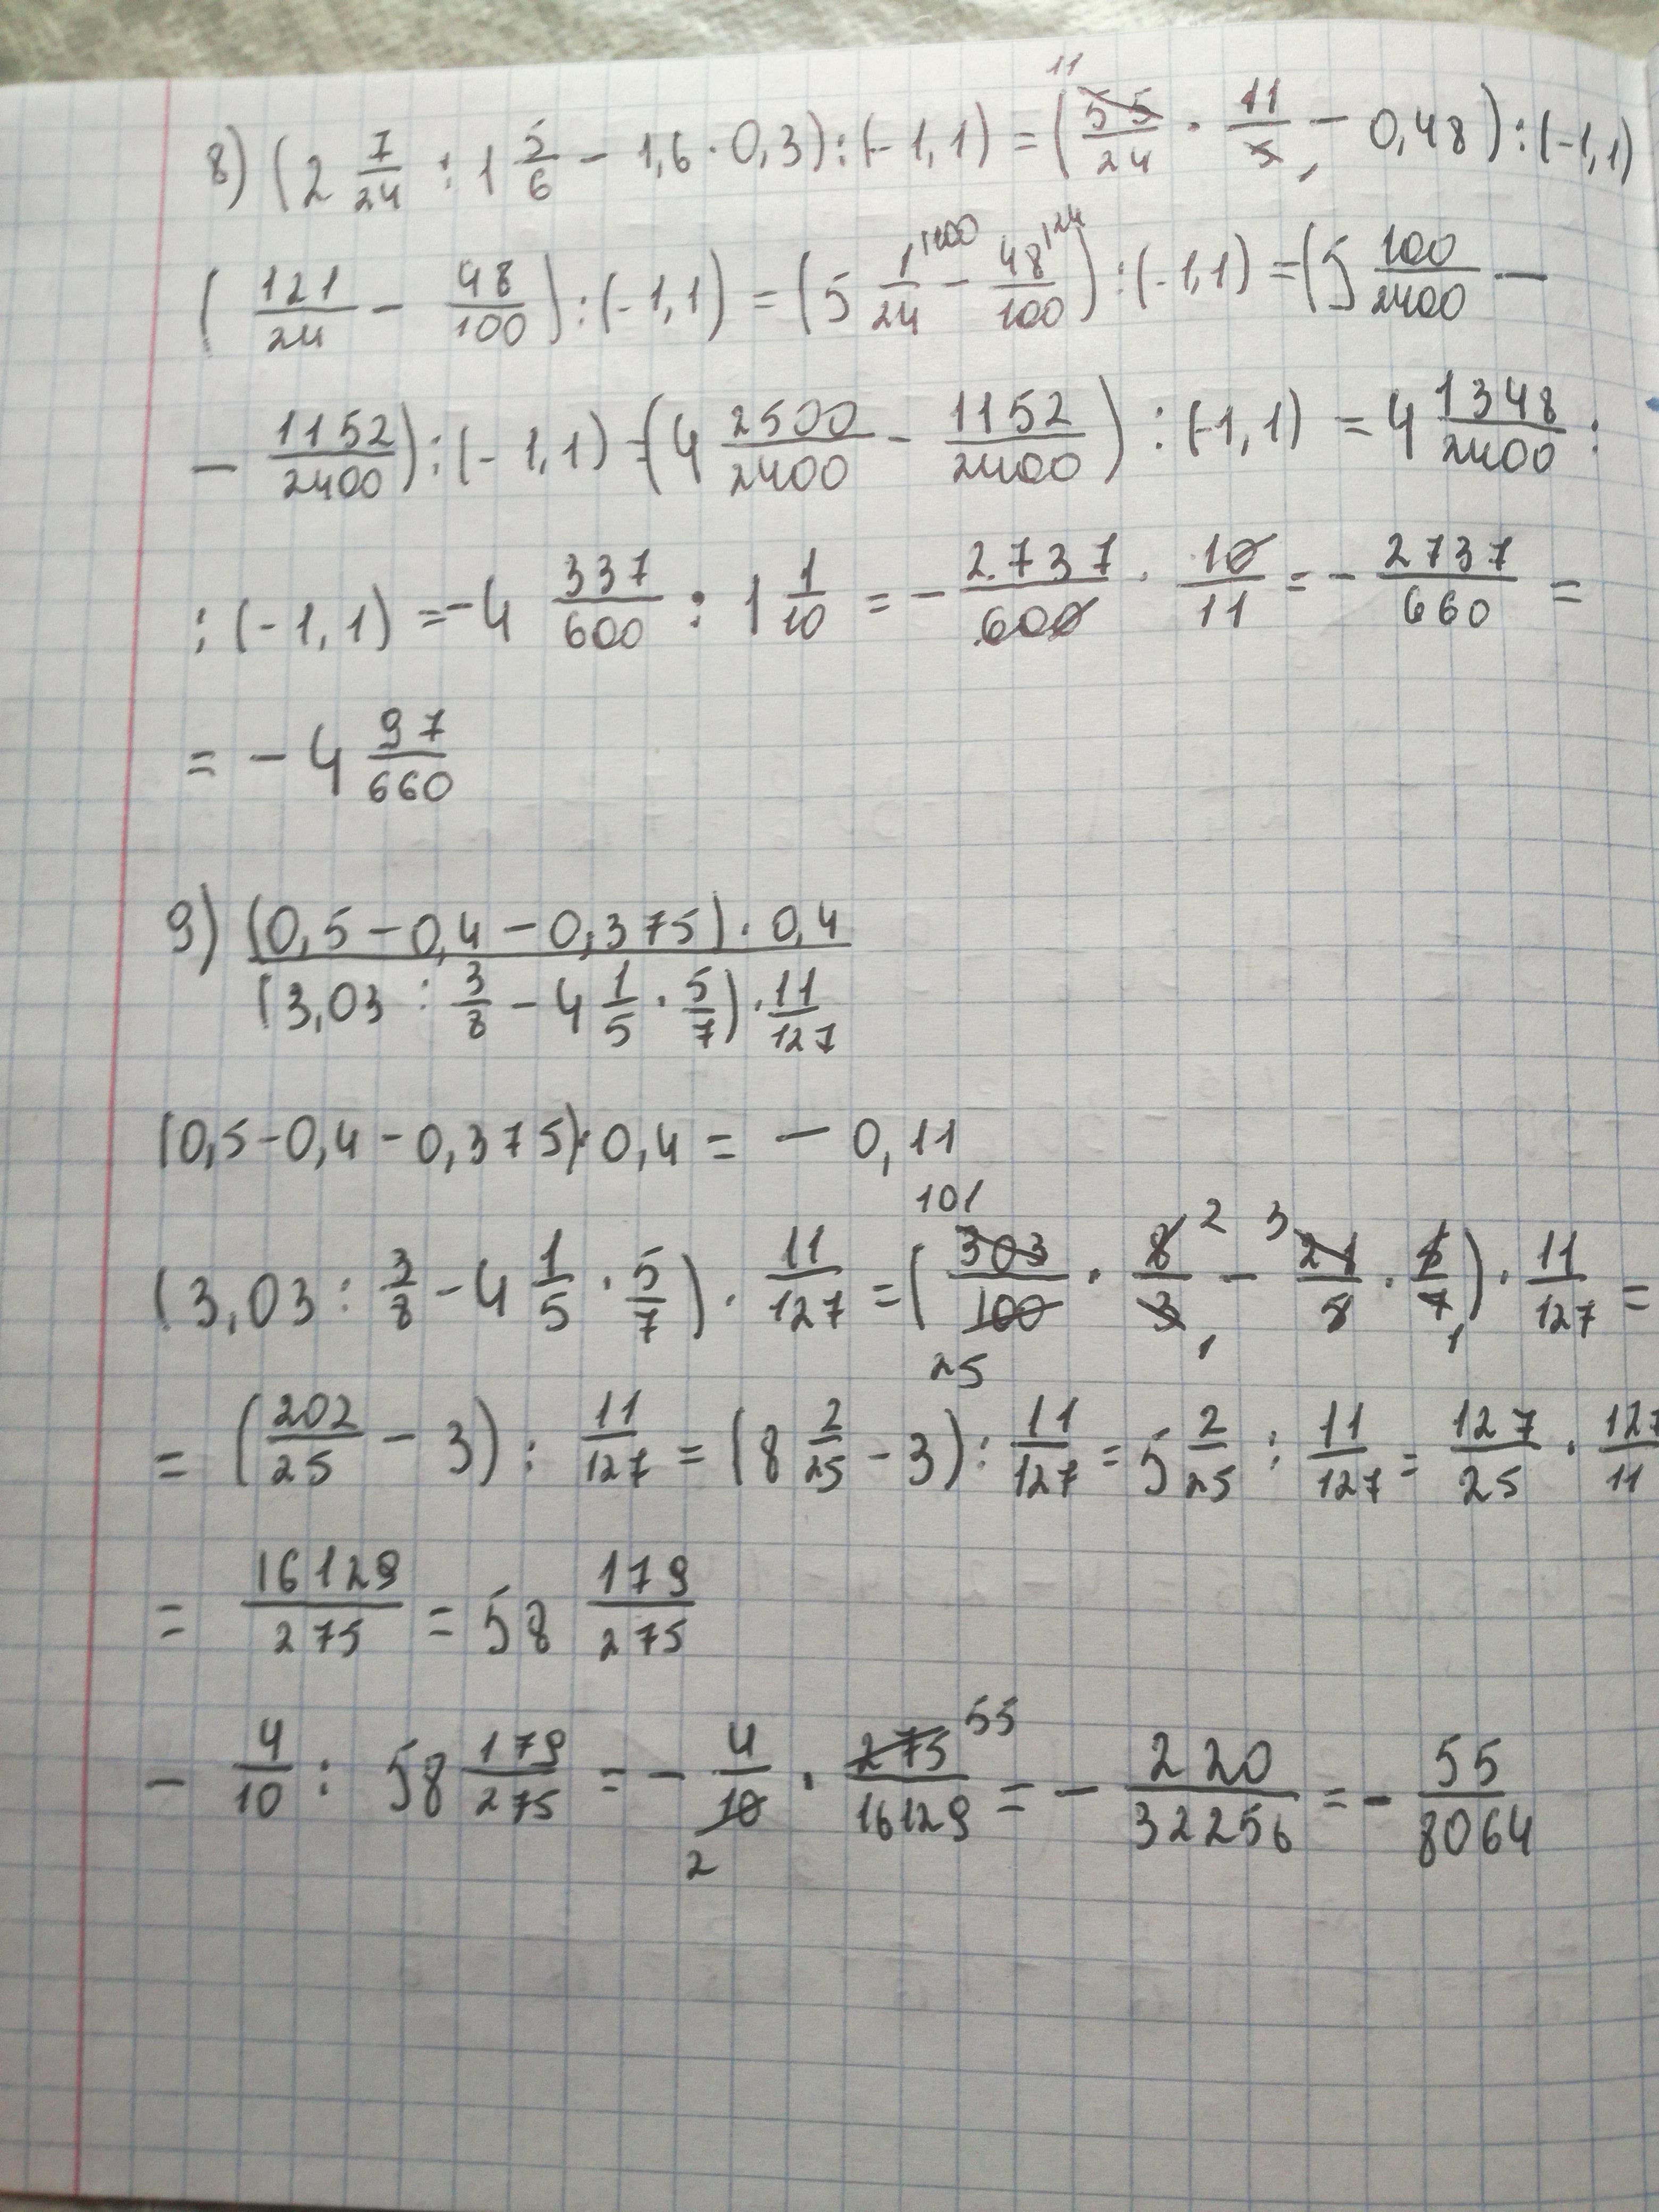 8) (2 7/24 : 1 5/6 - 1,6 · 0,3) : (-1,1) = (55/24 · 11/5 - 0,48) : (-1,1)
11 1
(121/24 - 48/100) : (-1,1) = (5 1/24 |100 - 48/100 |24) : (-1,1) = (5 100/2400 -
- 1152/2400) : (-1,1) = (4 2500/2400 - 1152/2400) : (-1,1) = 4 1348/2400 :
: (-1,1) = -4 337/600 : 1 1/10 = - 2737/600 · 10/11 = - 2737/660 =
= - 4 97/660
9) (0,5 - 0,4 - 0,375) · 0,4
(3,03 : 3/8 - 4 1/5 · 5/7) · 11/127
(0,5 - 0,4 - 0,375) · 0,4 = - 0,11
(3,03 : 3/8 - 4 1/5 · 5/7) · 11/127 = (303/100 · 8/3 - 21/5 · 5/7) · 11/127 =
101 25 2 1 3 1
= (202/25 - 3) : 11/127 = (8 2/25 - 3) : 11/127 = 5 2/25 : 11/127 = 127/25 · 127/11
= 16129/275 = 58 179/275
- 4/10 : 58 179/275 = - 4/10 · 275/16129 = - 220/32256 = - 55/8064
2 55